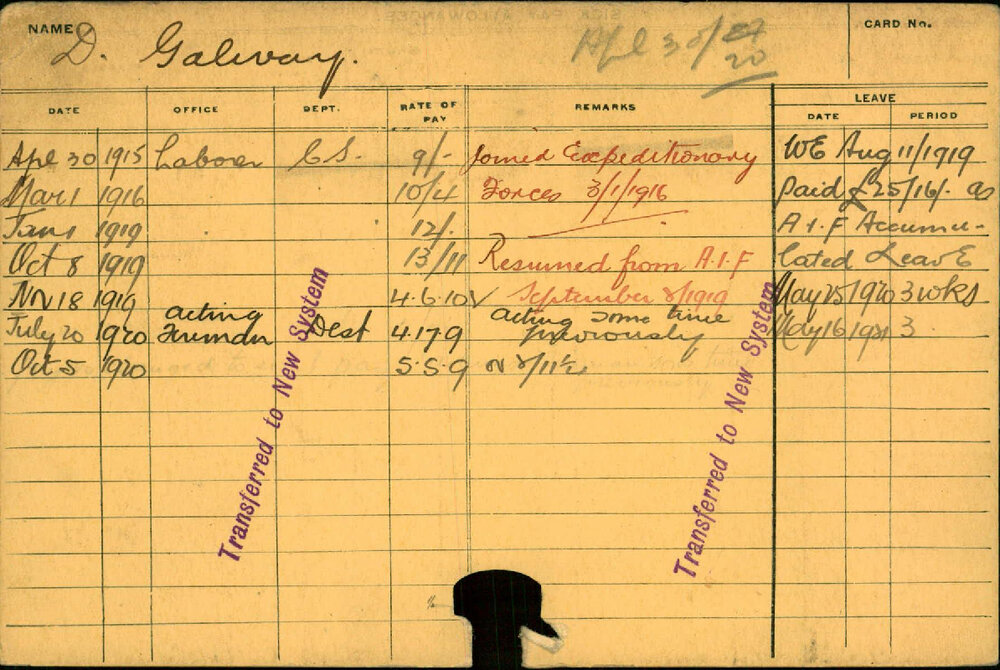 NAME D. Galway. Apl 30/
20
CARD No.
LEAVE
DATE OFFICE DEPT. RATE OF PAY REMARKS DATE PERIOD
Apl 30 1915 Laborer C.S. 9/- Joined Expeditionary WE Aug 11/1919
Mar 1 1916 10/4 Forces 3/1/1916 Paid £25/16/- as
Jan 1 1919 12/- A.I.F Accumu-
Oct 8 1919 13/11 Resumed from A.I.F lated Leave
Nov 18 1919 4.6.10 September 8/1919 May 25/1920 3 wks
July 20 1920 acting Foreman Dest 4.17.9 acting some time previously May 16 1921 3
Oct 5 1920 5.5.9
Transferred to New System
Transferred to New System